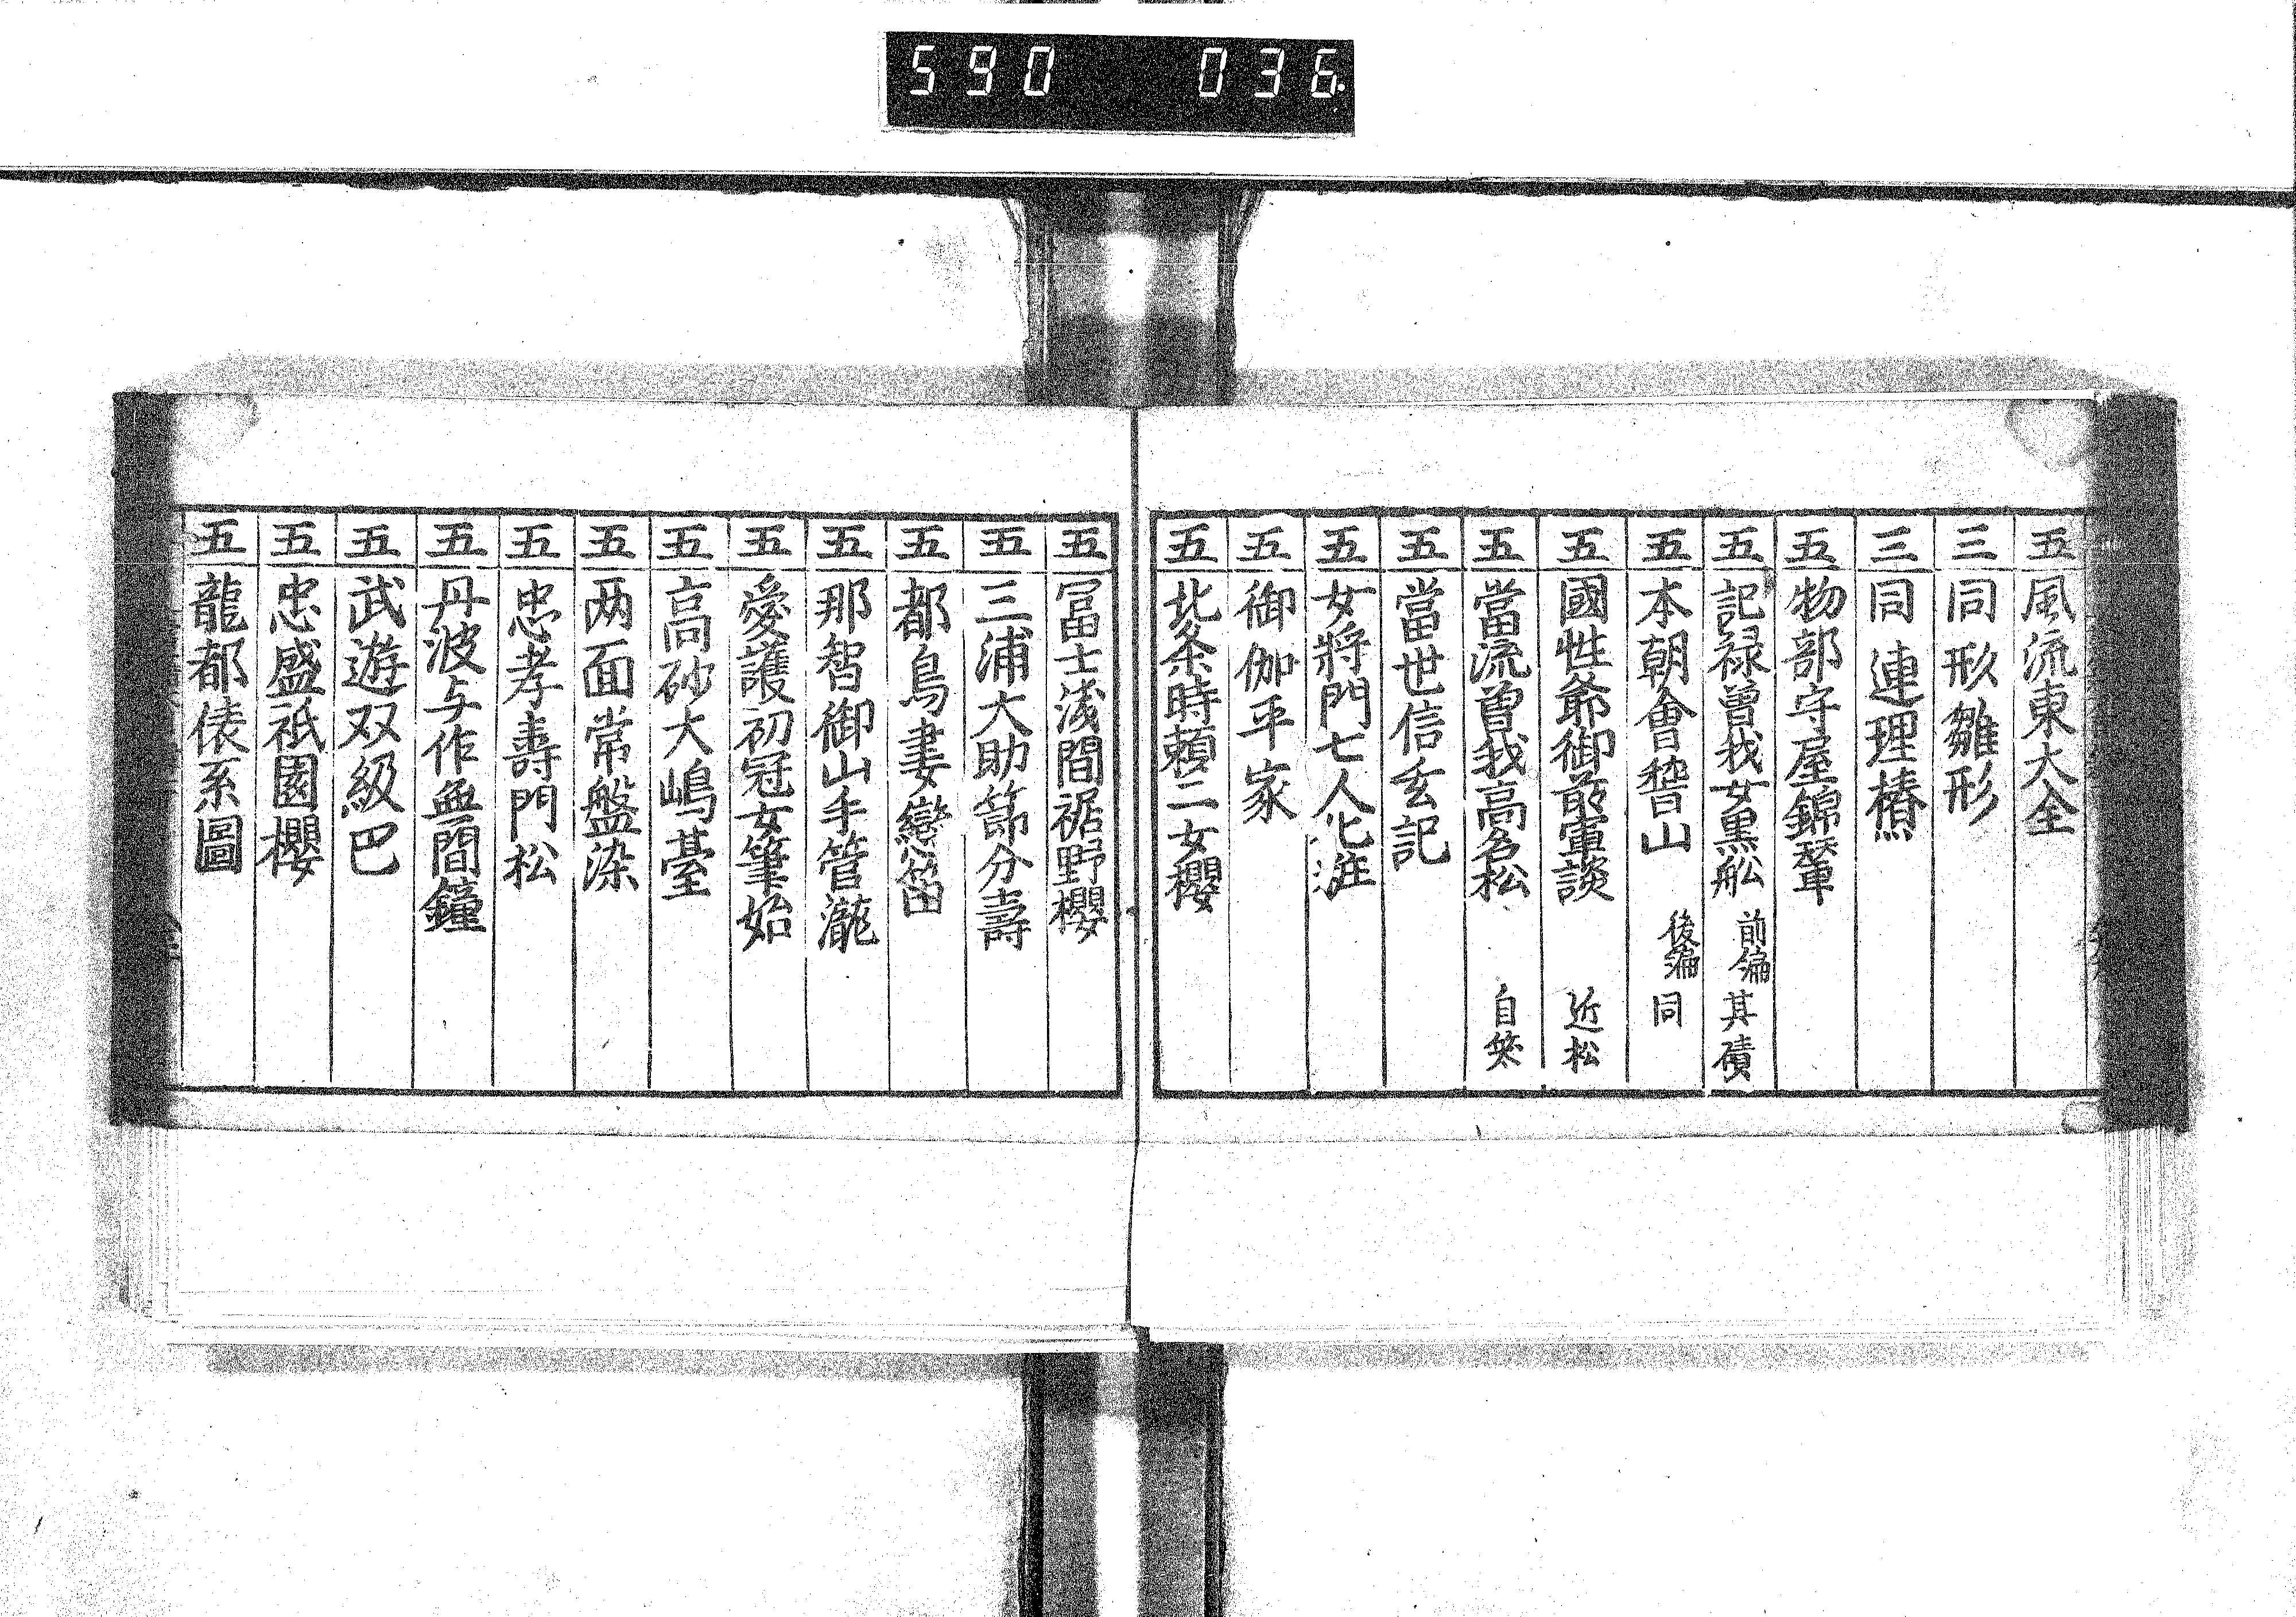 590 036
五 風流東大全
三 同 形雛形
三 同 連理椿
五 物部守屋錦輦
五 記禄曽我女黒舩 前編 其磧
五 本朝會稽山 後編 同
五 國性爺御前軍談 近松
五 當流曽我高名松 自笑
五 當世信玄記
五 女將門七人化粧
五 御伽平家
五 北条時頼二女櫻
五 冨士浅間裾野櫻
五 三浦大助節分壽
五 都鳥妻戀笛
五 那智御山手管瀧
五 愛護初冠女筆始
五 高砂大嶋臺
五 两面常盤染
五 忠孝壽門松
五 丹波与作無間鐘
五 武遊双級巴
五 忠盛祇園櫻
五 龍都俵系圖